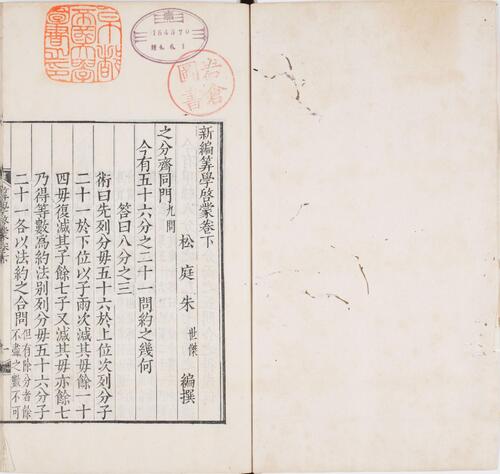 新編筭學啓蒙卷下
松庭朱世傑編撰
之分齊同門九問
今有五十六分之二十一問約之幾何
答曰八分之三
術曰先列分母五十六於上位次列分子
二十一於下位以子兩次減其母餘一十
四母復減其子餘七子又減其母亦餘七
乃得等數為約法别列分母五十六分子
二十一各以法約之合問但有除分者餘不盡之數不可
京都
帝國大學
圖書之印
184570
岩倉
圖書